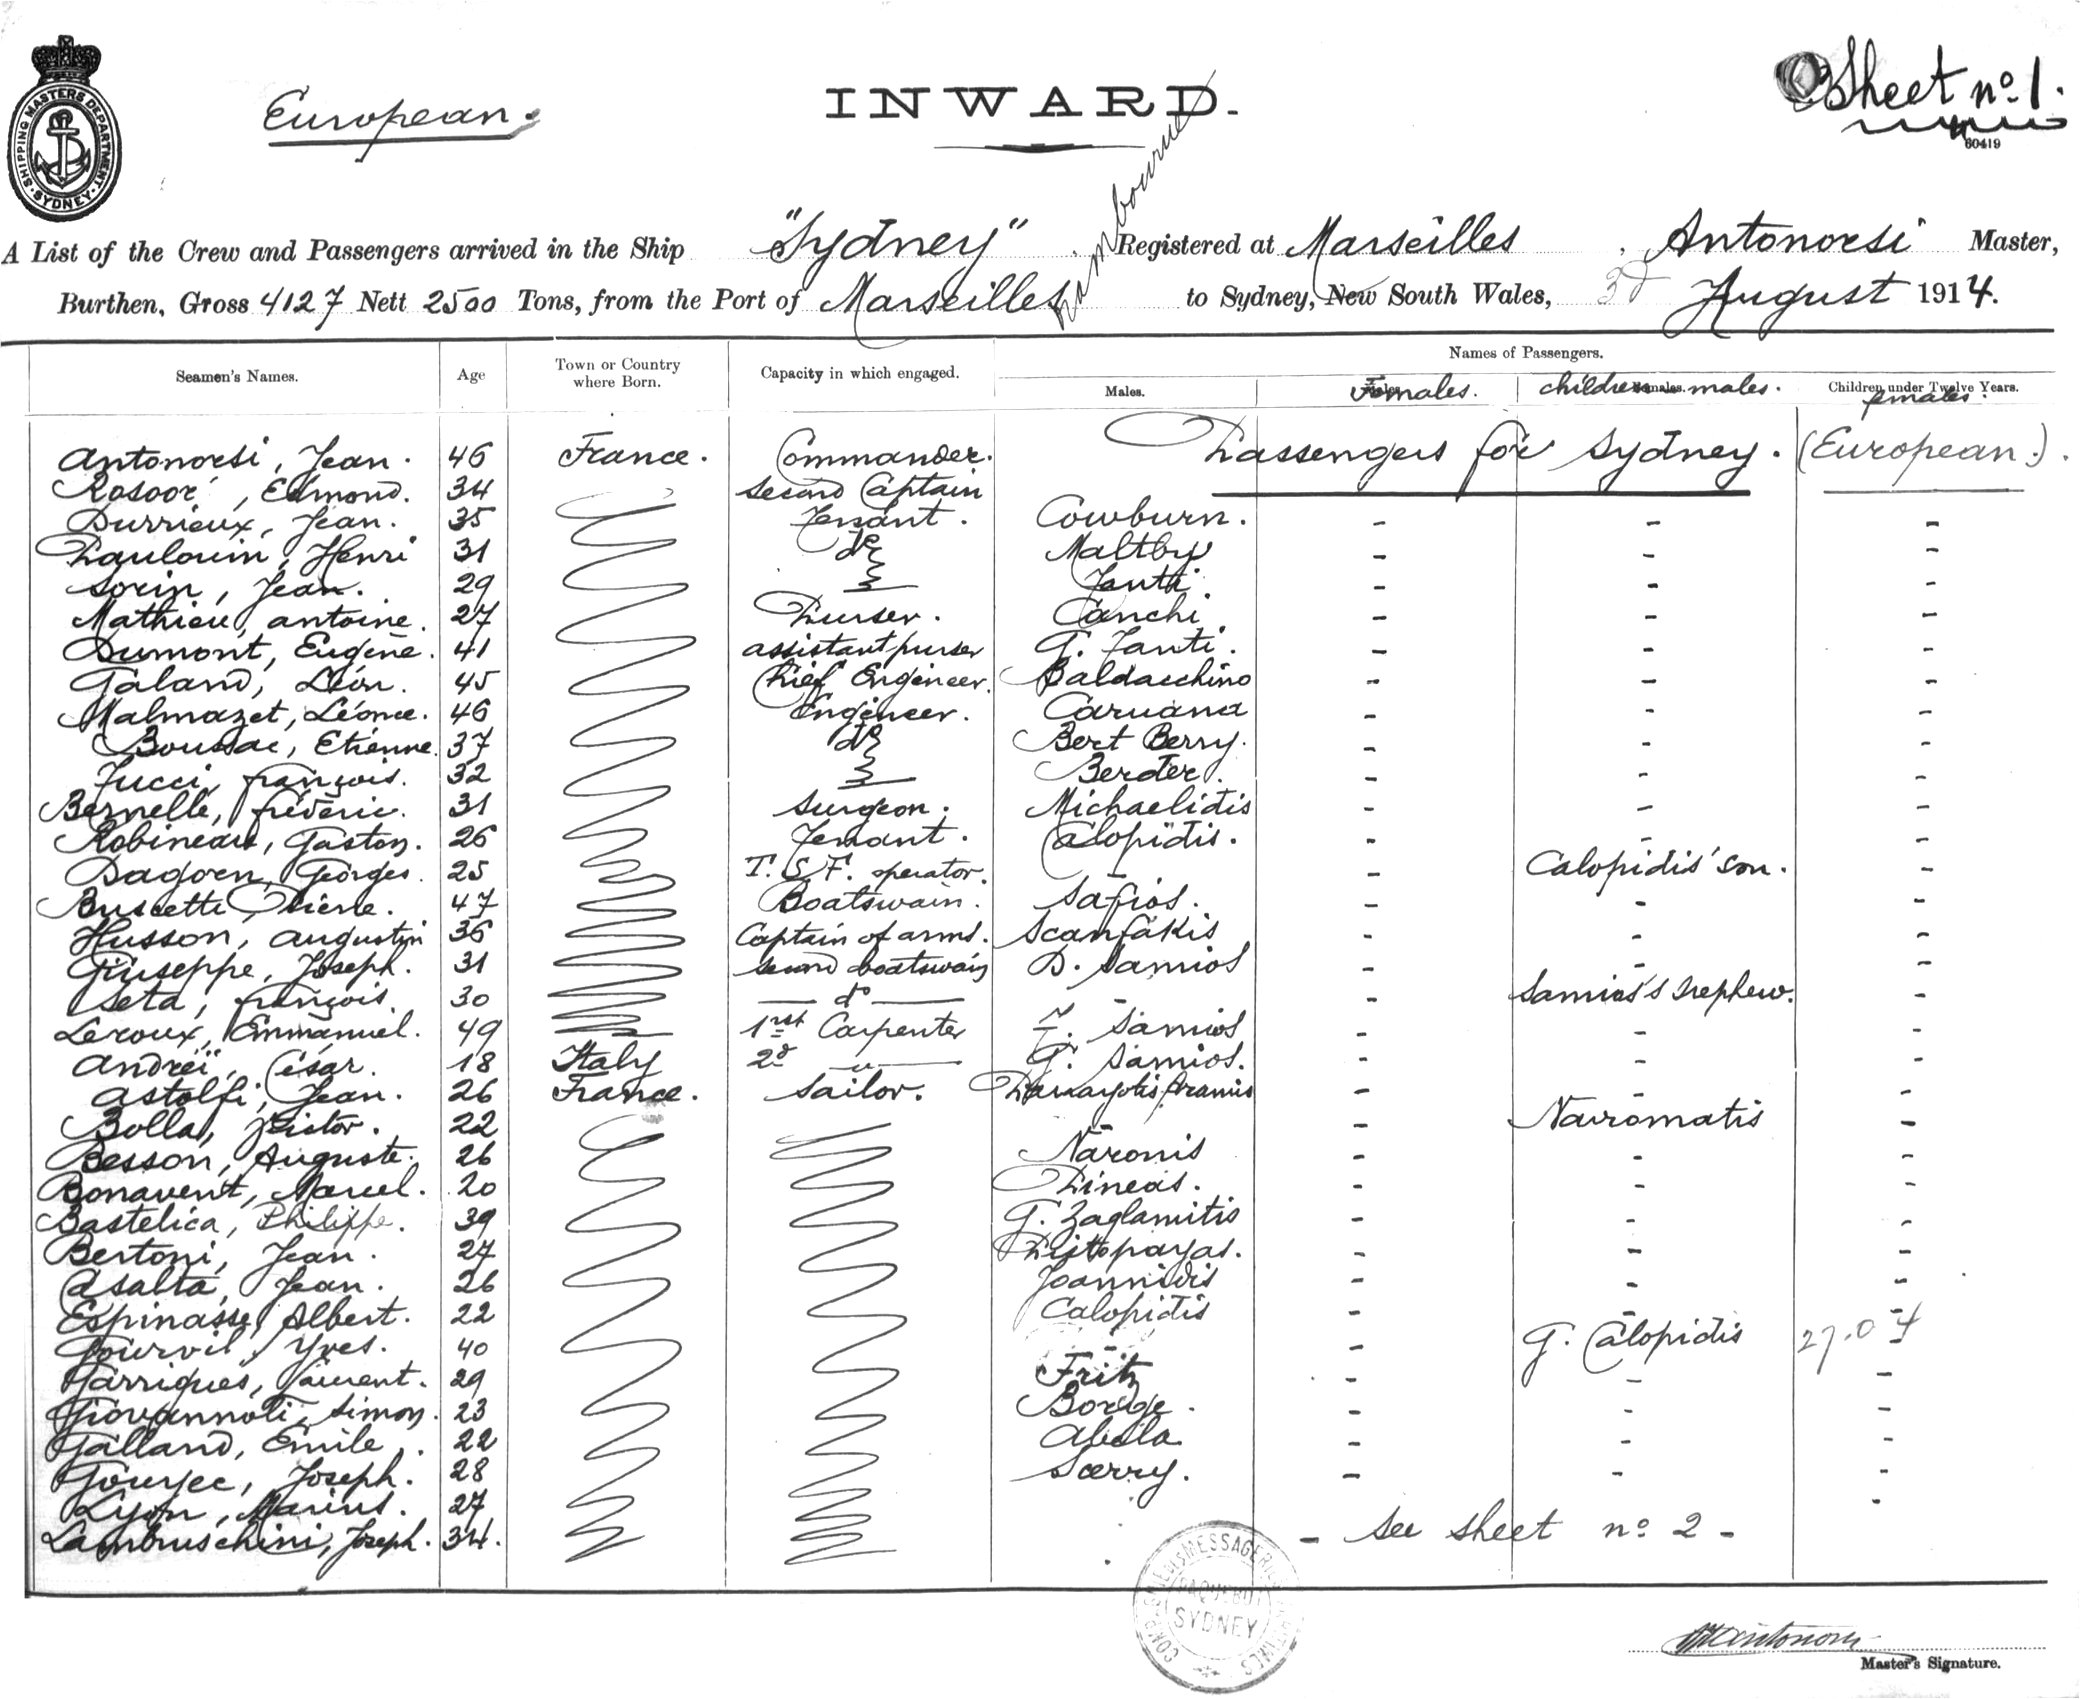 European.
INWARD.
Sheet no. 1.
60419
SHIPPING MASTERS DEPARTMENT SYDNEY
A List of the Crew and Passengers arrived in the Ship "Sydney" Registered at Marseilles, Antonorsi Master,
Burthen, Gross 4127 Nett 2500 Tons, from the Port of Marseilles to Sydney, New South Wales, 3d August 1914.
Seamen's Names. Age Town or Country where Born. Capacity in which engaged. Names of Passengers.
Males. Females. children males. Children under Twelve Years. females.
Passengers for Sydney. (European.).
Antonorsi, Jean. 46 France. Commander.
Edmond. 34 Second Captain
Durrieux, Jean. 35 Cowburn. - - -
Henri 31 do Maltby - - -
Sorin, Jean. 29 - - -
Mathieu, antoine. 27 Purser. Canchi - - -
Dumont, Eugène. 41 assistant purser - - -
Galand, Léon. 45 Chief Engineer. Baldacchino - - -
Malmazet, Léonce. 46 Engineer. Caruana - - -
Boussac, Etienne. 37 do Bert Berry. - - -
Tucci, françois. 32 - - -
Bernelle, fréderic. 31 Surgeon. Michaelidis - - -
Robineau, Gaston. 26 Calopidis. - -
Georges. 25 T. S. F. operator. - Calopidis' son. -
Buscette, Pierre. 47 Boatswain. Safios. - - -
Husson, augustin 36 Captain of arms. Scanfakis - - -
Giuseppe, Joseph. 31 Second boatswain D. Samios -
Seta, françois. 30 do - Samios's nephew. -
Leroux, Emmanuel. 49 1rst Carpenter Samios - - -
Andreï, César. 18 Italy 2d G. Samios. - - -
Astolfi, Jean. 26 France. Sailor. - - -
Bolla, Victor. 22 - Navromatis -
Besson, Auguste. 26 Naronis - - -
Bonavent, Marcel. 20 Pineas. - - -
Bastelica, Philippe. 39 G. Zaglamitis - - -
Bertoni, Jean. 27 - - -
Casalta, Jean. 26 Joannidis - - -
Espinasse, Albert. 22 Calopidis - -
Yves. 40 - G. Calopidis
Garrigues, Laurent. 29 Fritz - - -
Giovannoti, Simon. 23 Borge. - - -
Galland, Emile. 22 Abela - - -
Joseph. 28 Sarry. - - -
Lyon, Marius. 27 -
Lambruschini, Joseph. 34. - See sheet no. 2 -
MESSAGERIES MARITIMES PAQUEBOT SYDNEY
Master's Signature.